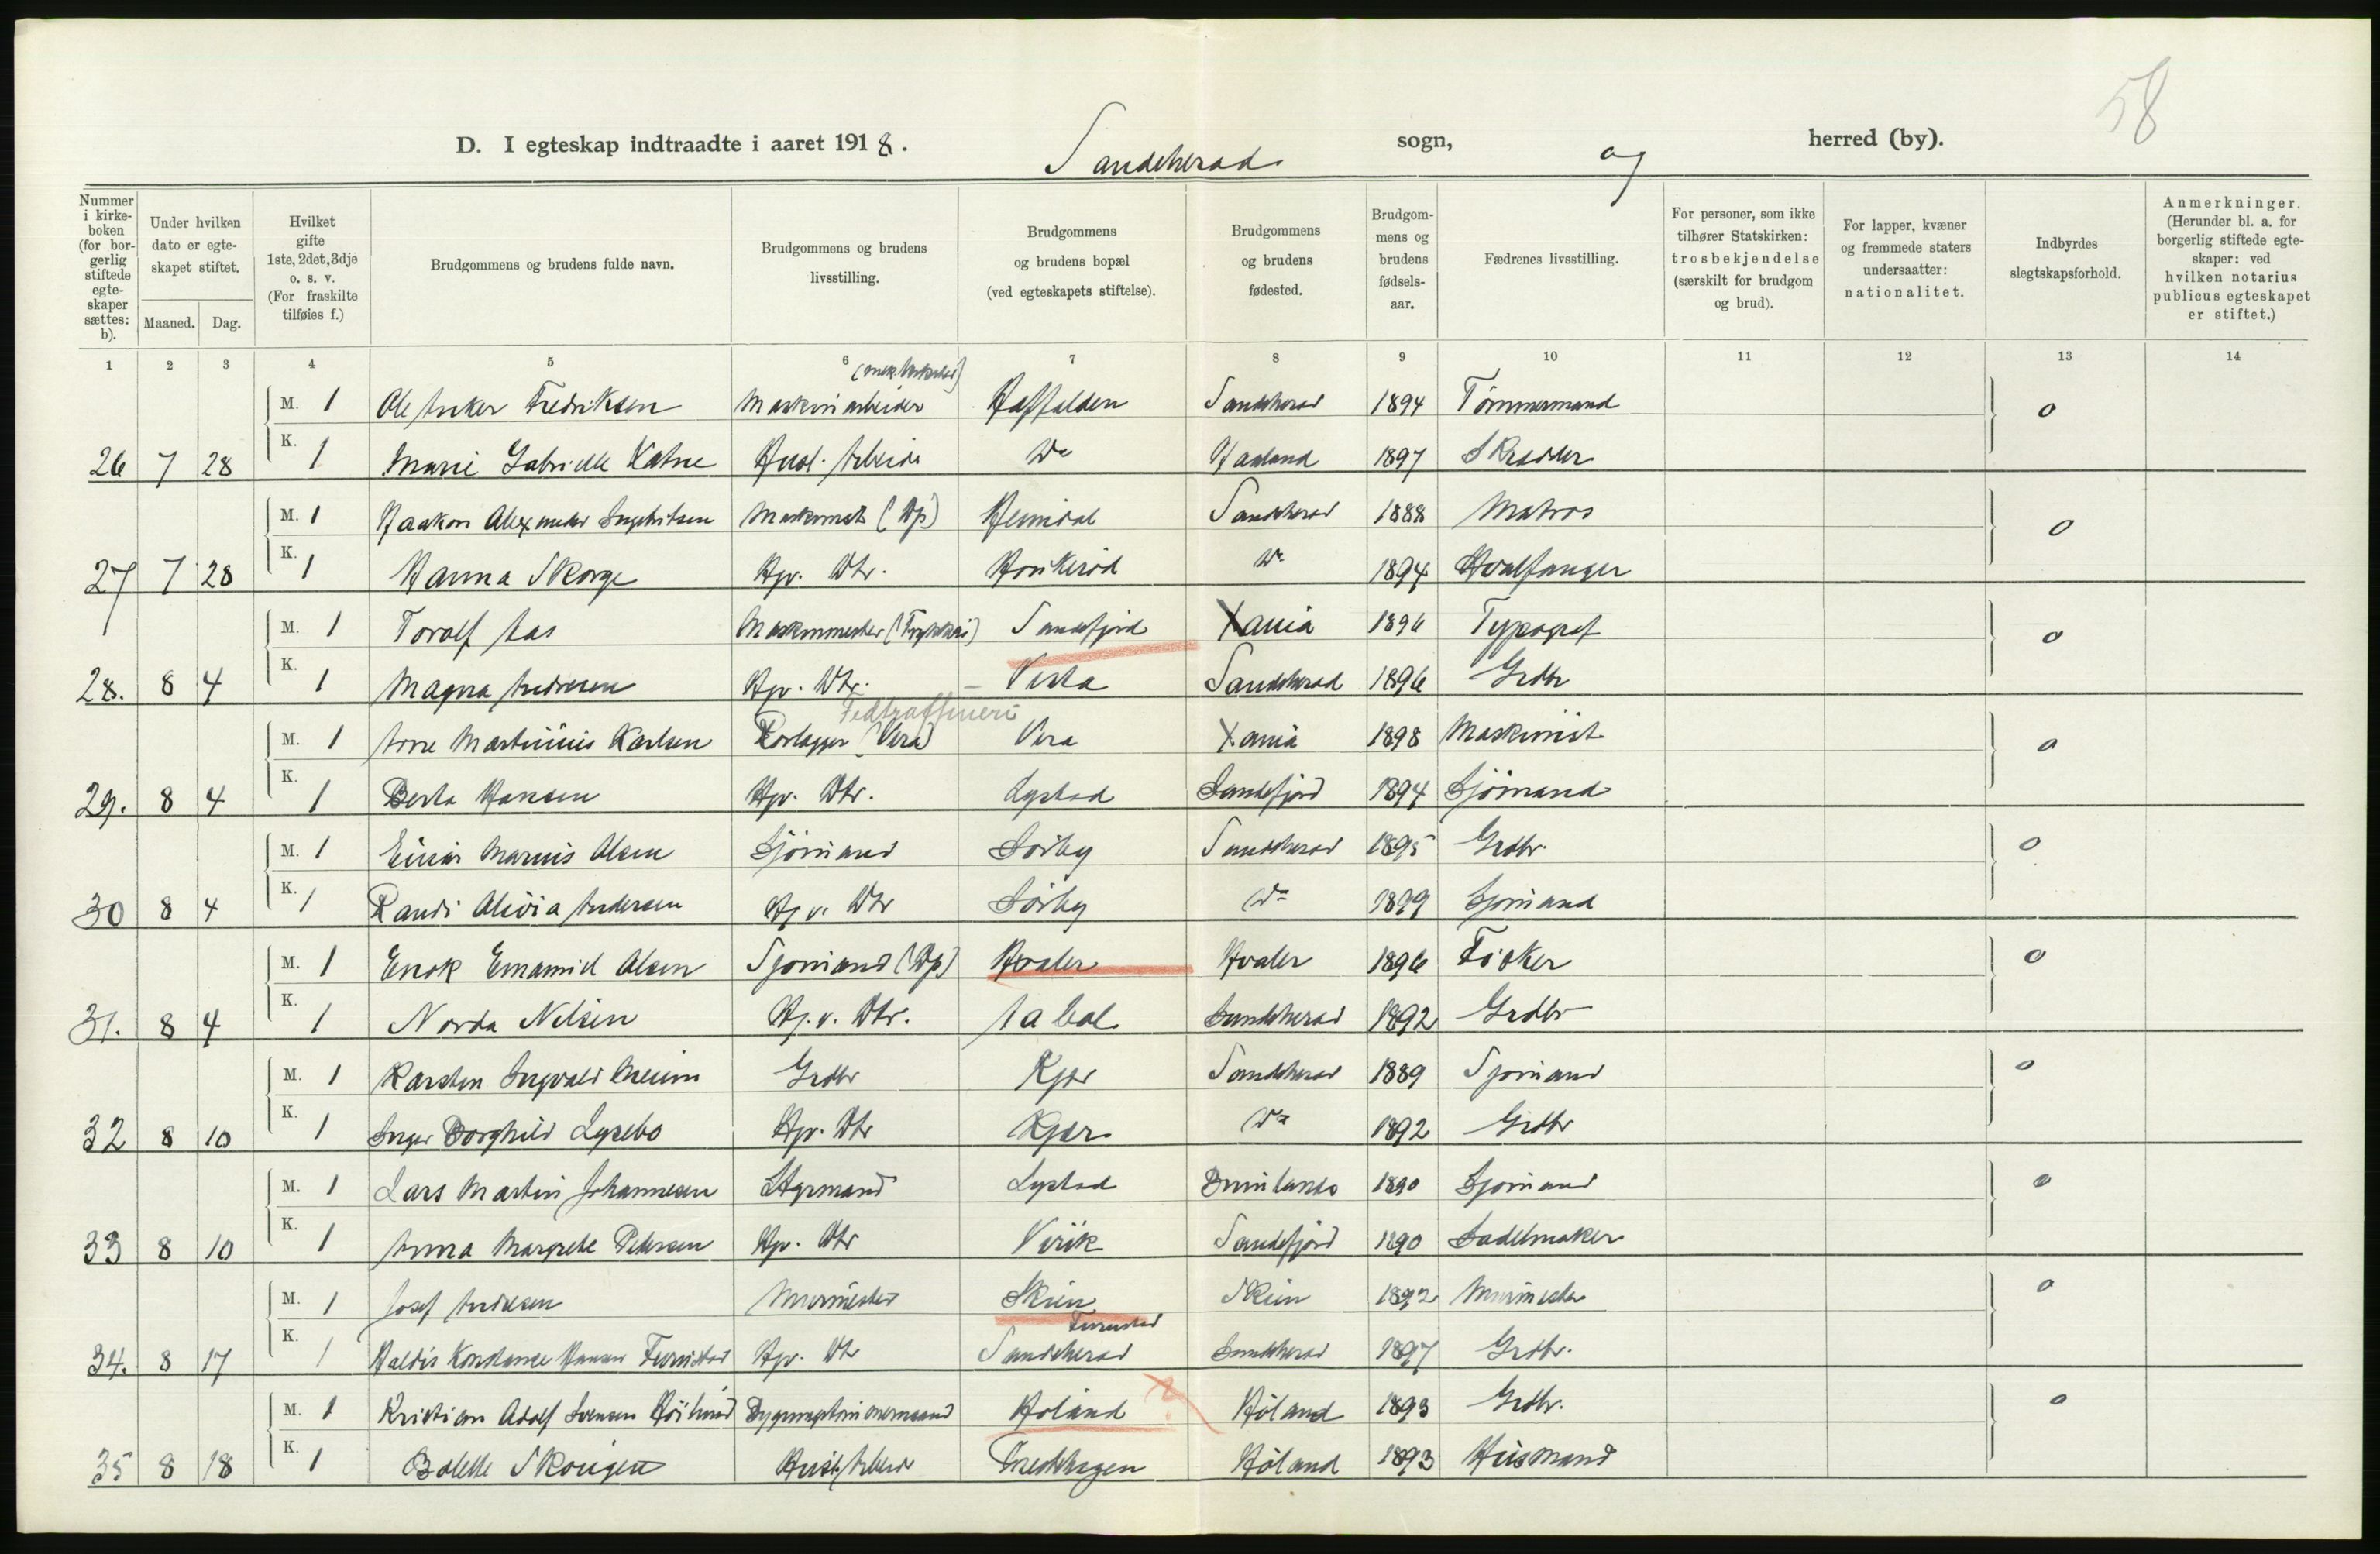 58
D. I egteskap indtraadte i aaret 1918. Sandeherad sogn, og herred (by).
Nummer i kirkeboken (for borgerlig stiftede egteskaper sættes: b).
Under hvilken dato er egteskapet stiftet.
Maaned. Dag.
Hvilket gifte 1ste, 2det, 3dje o. s. v. (For fraskilte tilføies f.)
Brudgommens og brudens fulde navn.
Brudgommens og brudens livsstilling.
Brudgommens og brudens bopæl (ved egteskapets stiftelse).
Brudgommens og brudens fødested.
Brudgommens og brudens fødselsaar.
Fædrenes livsstilling.
For personer, som ikke tilhører Statskirken: trosbekjendelse (særskilt for brudgom og brud).
For lapper, kvæner og fremmede staters undersaatter: nationalitet.
Indbyrdes slegtskapsforhold.
Anmerkninger. (Herunder bl. a. for borgerlig stiftede egteskaper: ved hvilken notarius publicus egteskapet er stiftet.)
1 2 3 4 5 6 7 8 9 10 11 12 13 14
M. 1 Ole Anker Fredriksen Maskinarbeider Sandeherad 1894 Tömmermand 0
26 7 28 K. 1 Marie Gabrielle Do 1897 Skrædder
M. 1 Haakon Alexander Ingebritsen Maskinist Heimdal Sandeherad 1888 Matros 0
27 7 28 K. 1 Hanna Skorge Hjv. Dtr. Do 1894 Hvalfanger
M. 1 Toralf Aas Maskinmester Sandefjord Xania 1896 Typograf 0
28. 8 4 K. 1 Magna Andresen Hjv. Dtr. Vesta Sandeherad 1896 Grdbr
Fedtraffineri
M. 1 Arne Martinius Karlsen Rörlægger (Vera) Vera Xania 1898 Maskinist 0
29. 8 4 K. 1 Berta Hansen Hjv. Dtr. Lystad Sandefjord 1894 Sjömand
M. 1 Einar Marius Olsen Sjömand Sörby Sandeherad 1895 Grdbr. 0
30 8 4 K. 1 Randi Andersen Hjv. Dtr Sörby Do 1899 Sjömand
M. 1 Enok Emanuel Olsen Sjömand Hvaler Hvaler 1896 Fisker 0
31. 8 4 K. 1 Norda Nilsen Hj.v. Dtr. Sandeherad 1892 Grdbr
M. 1 Karsten Ingvald Grdbr Kjær Sandeherad 1889 Sjömand 0
32 8 10 K. 1 Inger Borghild Lysebo Hjv. Dtr Kjær Do 1892 Grdbr
M. 1 Lars Martin Johannesen Styrmand Lystad Brunlanes 1890 Sjömand 0
33 8 10 K. 1 Anna Margrete Pedersen Hjv. Dtr Virik Sandefjord 1890 Sadelmaker
M. 1 Josef Andresen Murmester Skien Skien 1892 Murmester 0
Furustad
34. 8 17 K. 1 Haldis Konstanse Hansen Furustad Hjv. Dtr Sandeherad Sandeherad 1897 Grdbr.
M. 1 Kristian Adolf Svensen Bygningstömmermand Höland ? Höland 1893 Grdbr. 0
35 8 18 K. 1 Bolette Skougen Höland 1893 Husmand